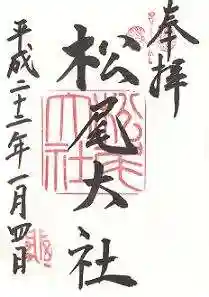 奉拝
松尾大社
平成二十二年一月四日
松尾大社